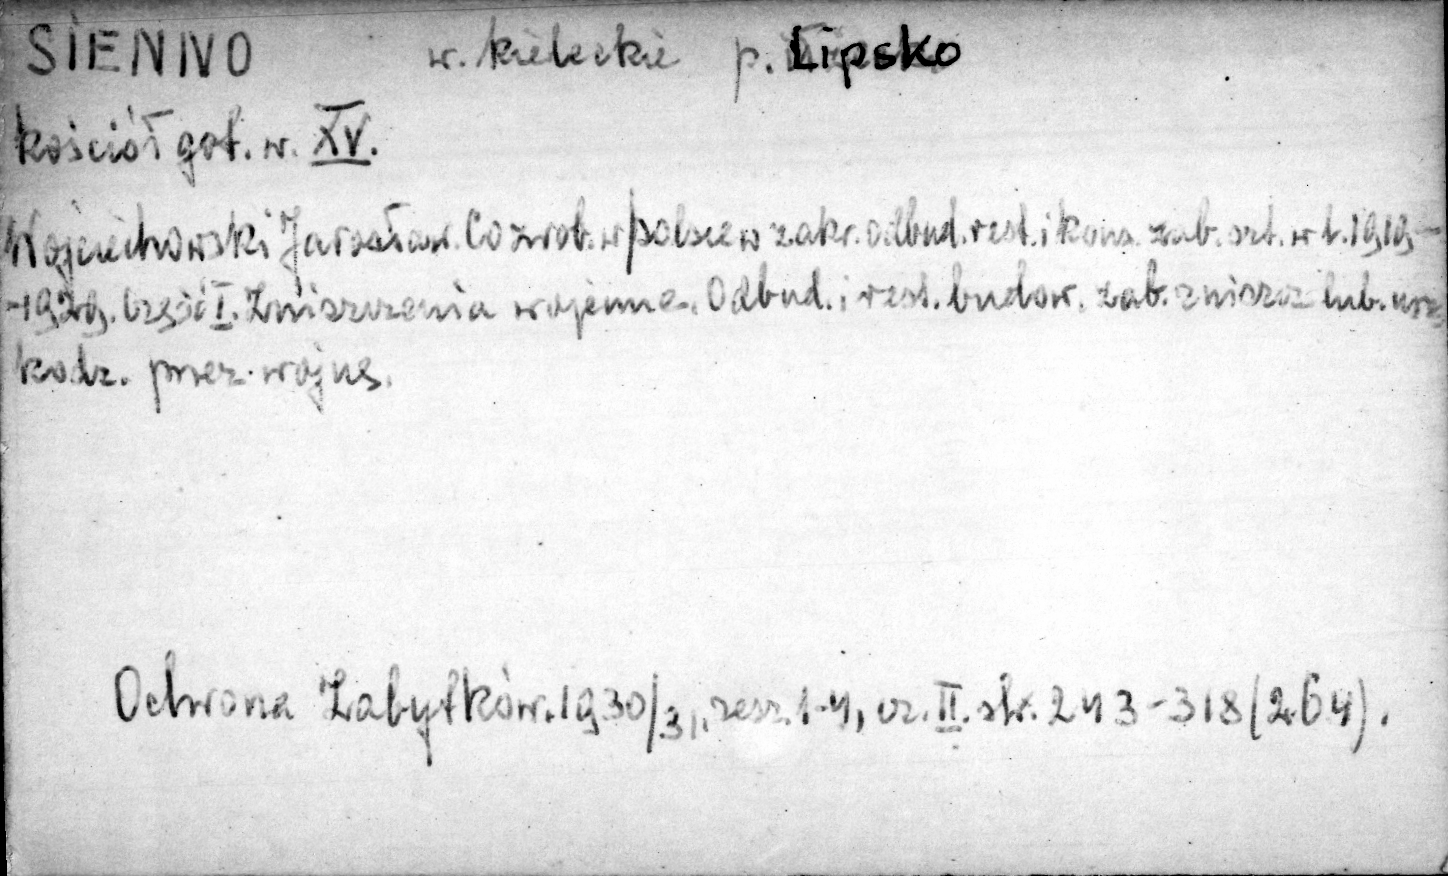 SIENNO w. kieleckie p. Lipsko
kościół got. w. XV.
Wojciechowski Jarosław. Co zrob. w Polsce w zakr. odbud. rest. i kons. zab. szt. w l. 1919-
-1929. Część I. Zniszczenia wojenne. Odbud. i rest. budow. zab. zniszcz lub. usz
kodz. przez wojnę.
Ochrona Zabytków. 1930/31, zesz. 1-4, cz. II. str. 243-318 (264).